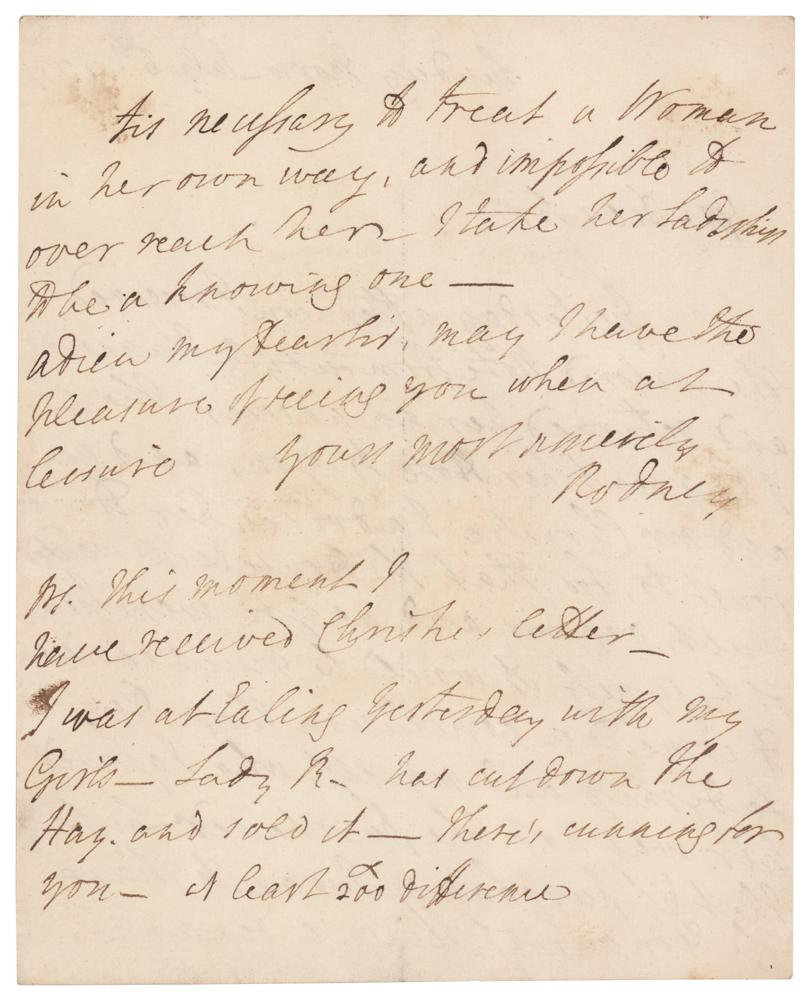 tis necessary to treat a Woman
in her own way, and impossible to
over reach her – I take her Ladyship
to be a knowing one —
adieu my Dear Sir, may I have the
pleasure of seeing you when at
leisure yours most sincerely
Rodney
Ps. This moment I
have received Christie's letter –
I was at Ealing Yesterday with my
Girls – Lady R– has cut down the
Hay. and sold it — there's cunning for
you – at least 200 difference